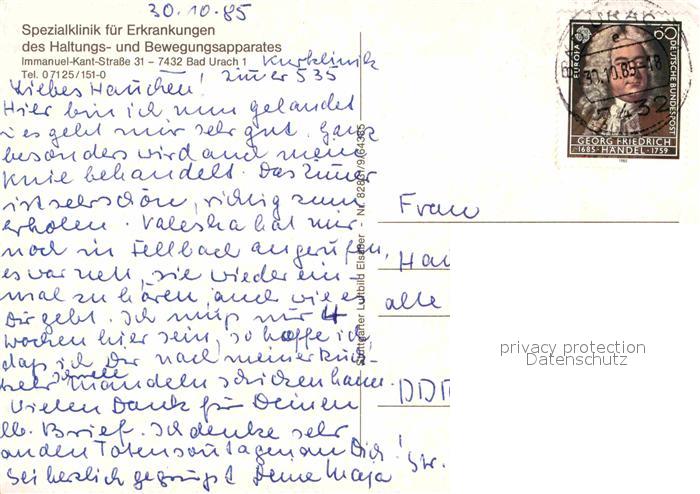 30.10.85
Spezialklinik für Erkrankungen
des Haltungs- und Bewegungsapparates
Immanuel-Kant-Straße 31 – 7432 Bad Urach 1 Kurklinik
Tel. 0 71 25 / 151-0 Zimmer 535
Liebes Hannchen!
Hier bin ich nun gelandet
u. es geht mir sehr gut. Ganz
besonders wird auch mein
Knie behandelt. Das Zimmer
ist sehr schön, richtig zum
erholen. Valeska hat mir
noch in Fellbach angerufen,
es war nett, sie wieder ein-
mal zu hören, auch wie es
Dir geht. Ich muß nur 4
Wochen hier sein, so hoffe ich,
daß ich Dir nach meiner Rück-
kehr Mandeln schicken kann.
Vielen Dank für Deinen
lb. Brief. Ich denke sehr
an den Totensonntagen an Dich!
Sei herzlich gegrüßt Deine Maja
Stuttgarter Luftbild Elsäßer
EUROPA
DEUTSCHE BUNDESPOST
60
GEORG FRIEDRICH
1685 · HÄNDEL · 1759
1985
BAD URACH
30.10.85-18
7432
Frau
Han
alte
Str.
DDR
privacy protection
Datenschutz